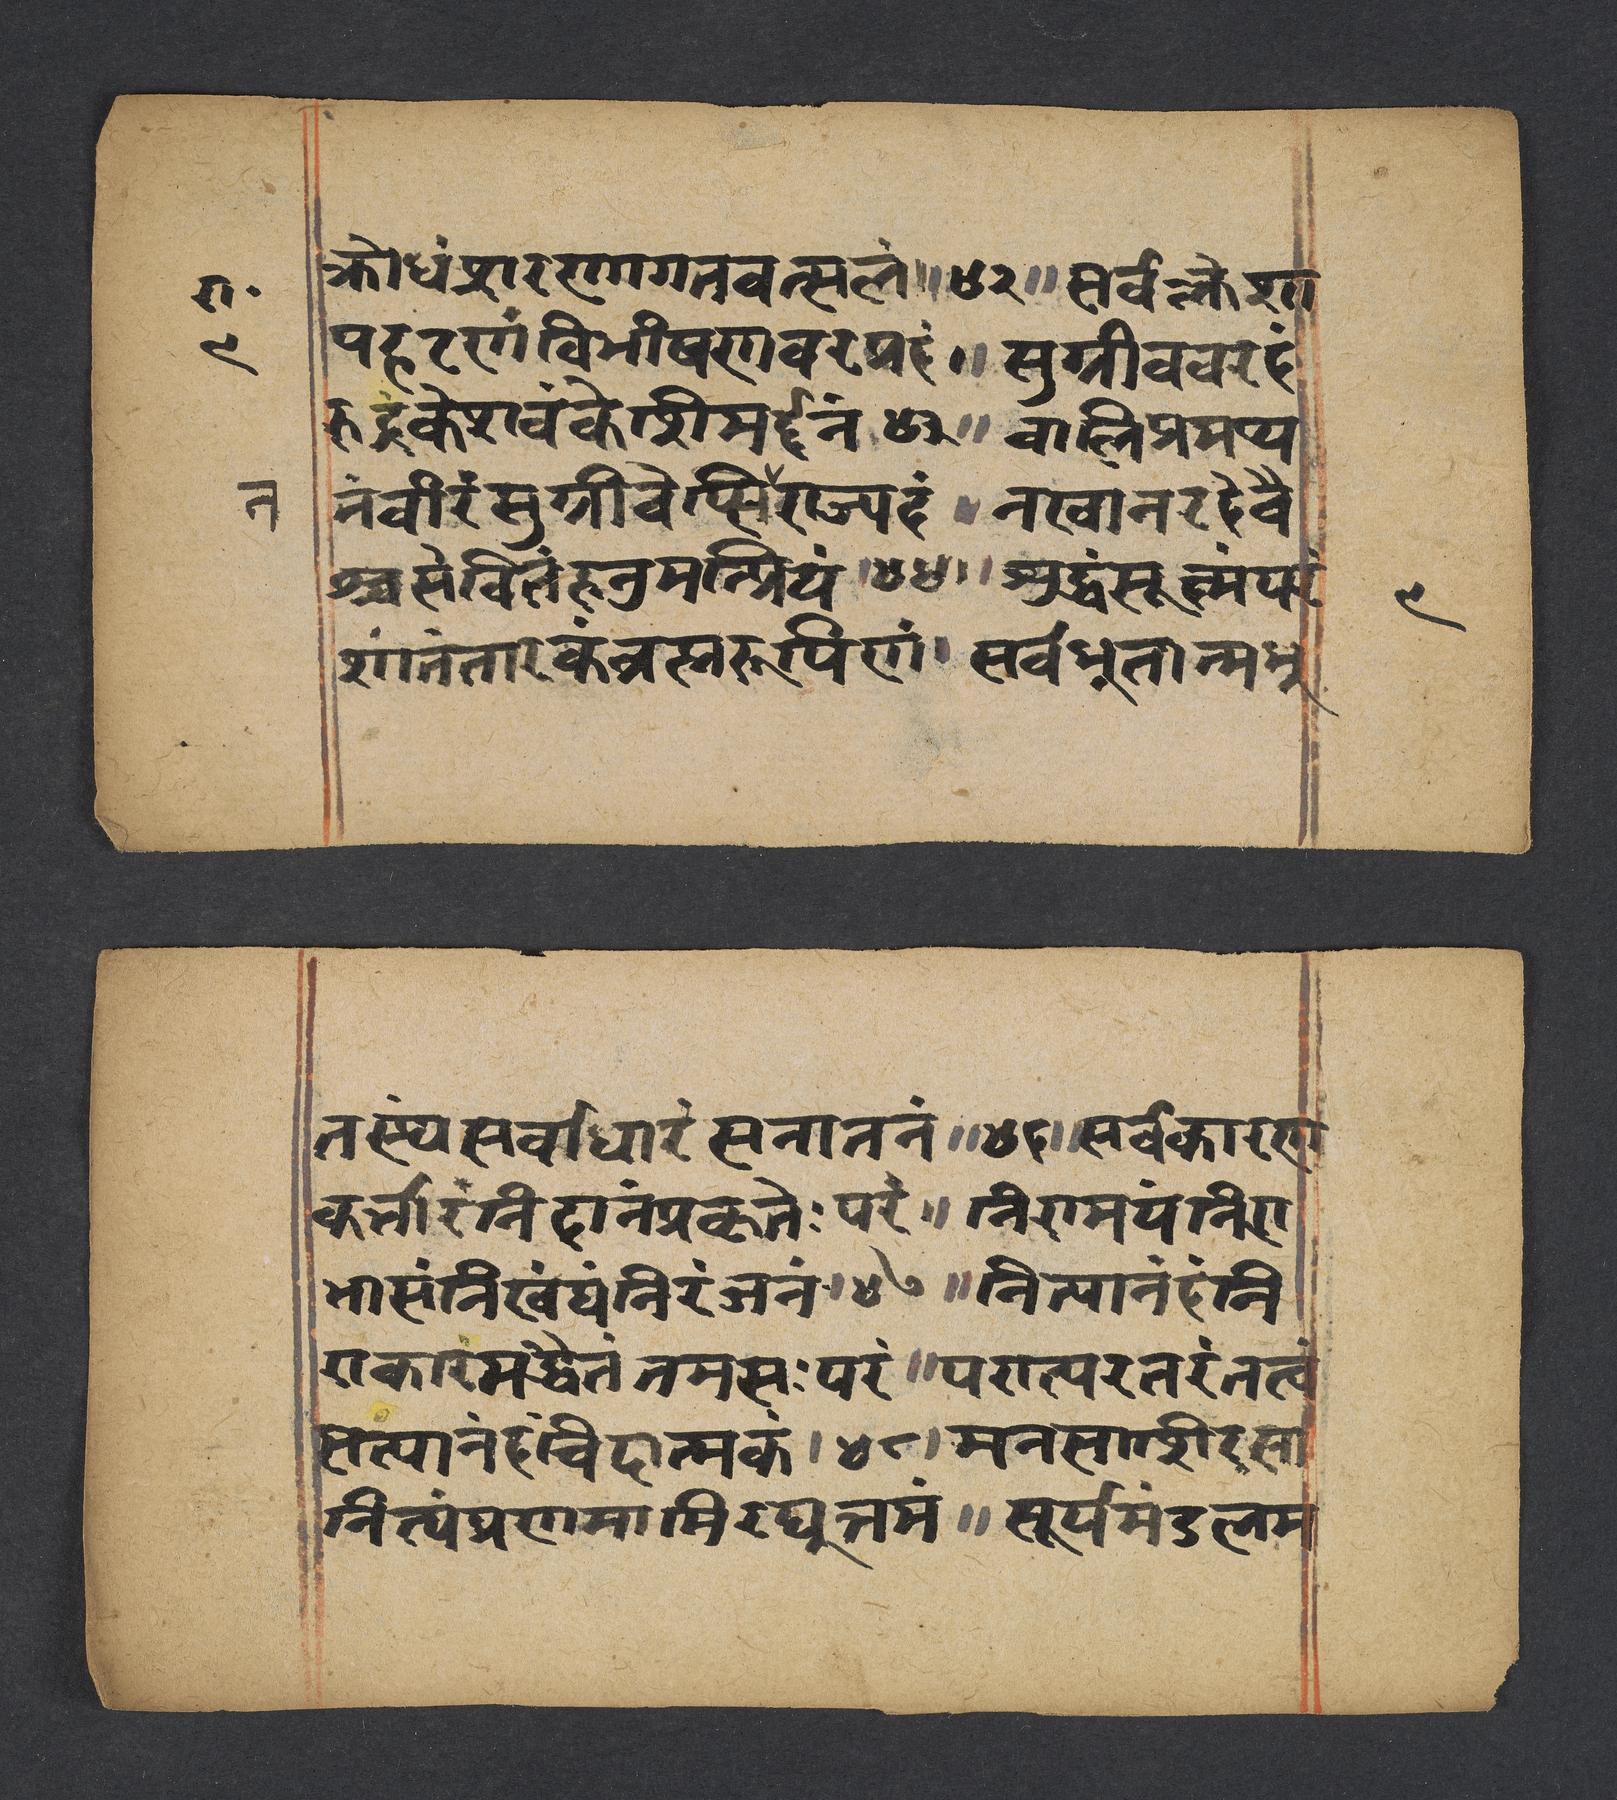 रा॰
९
क्रोधंशरणागतवत्सलं॥४२॥सर्वक्लेशा
पहरणंविभीषणवरप्रदं॥सुग्रीववरदं
रुद्रंकेशवंकेशिमर्द्दनं४३॥वालिप्रमथ्य
त
नंवीरंसुग्रीवेप्सिराज्यदं।नरवानरदेवै
श्चसेवितंहनुमत्प्रियं॥४४॥शुद्धंसूक्ष्मंपरं
९
शांतंतारकंब्रह्मरूपिणं।सर्वभूतात्मभू
तस्थंसर्वाधारंसनातनं॥४६॥सर्वकारण
कर्त्तारंनिदानंप्रकृतेःपरं॥निरामयंनिरा
भासंनिरवंद्यंनिरंजनं।४७॥नित्यानंदंनि
राकारमद्वैतंतमसःपरं॥परात्परतरंतत्वं
सत्यानंदंचिदात्मकं।४८।मनसाशिरसा
नित्यंप्रणमामिरघुत्तमं॥सूर्यमंडलम